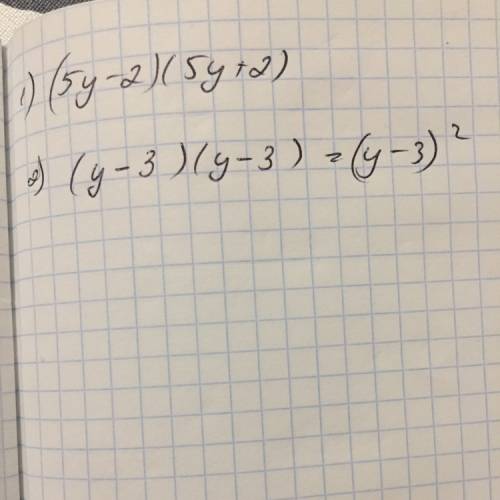 1) (5y-2)(5y+2)
2) (y-3)(y-3) = (y-3)²